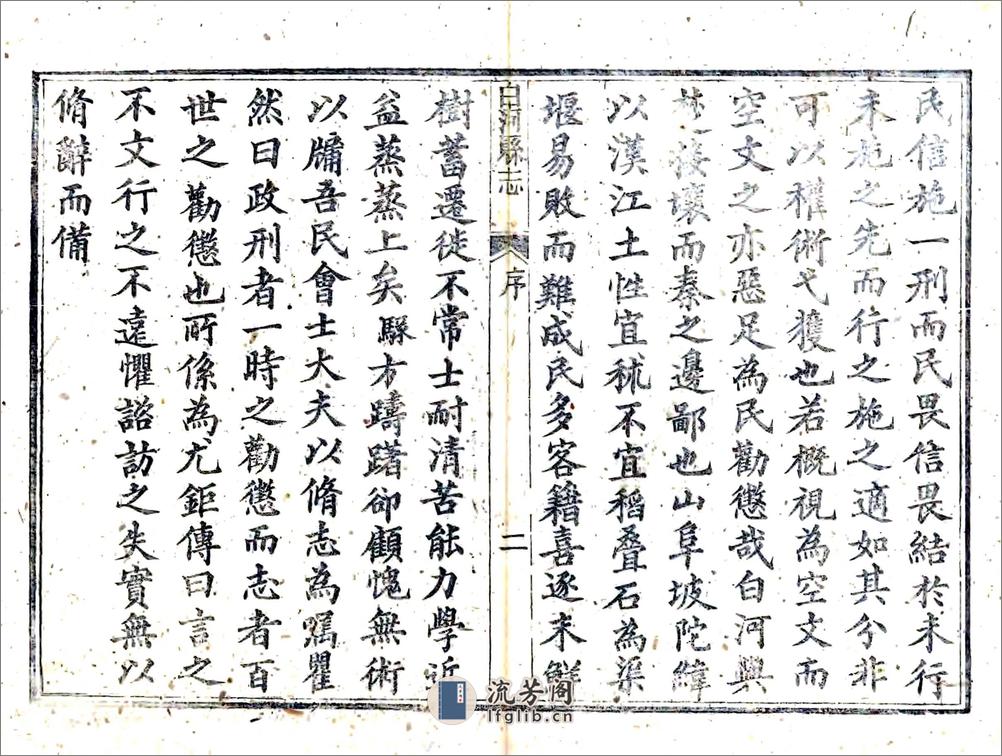 民信施一刑而民畏信畏結於未行
未施之先而行之施之適如其分非
可以權術弋獲也若概視為空文而
空文之亦惡足為民勸懲哉白河與
楚接壤而秦之邊鄙也山阜坡陀緯
以漢江土性宜秫不宜稻疊石為渠
堰易敗而難成民多客籍喜逐末鮮
白河縣志
序
二
樹蓄遷徙不常士耐清苦能力學近
益蒸蒸上矣騄方躊躇卻顧愧無術
以牖吾民會士大夫以脩志為囑瞿
然曰政刑者一時之勸懲而志者百
世之勸懲也所係為尤鉅傳曰言之
不文行之不遠懼諮訪之失實無以
脩辭而備
流芳阁
lfglib.cn